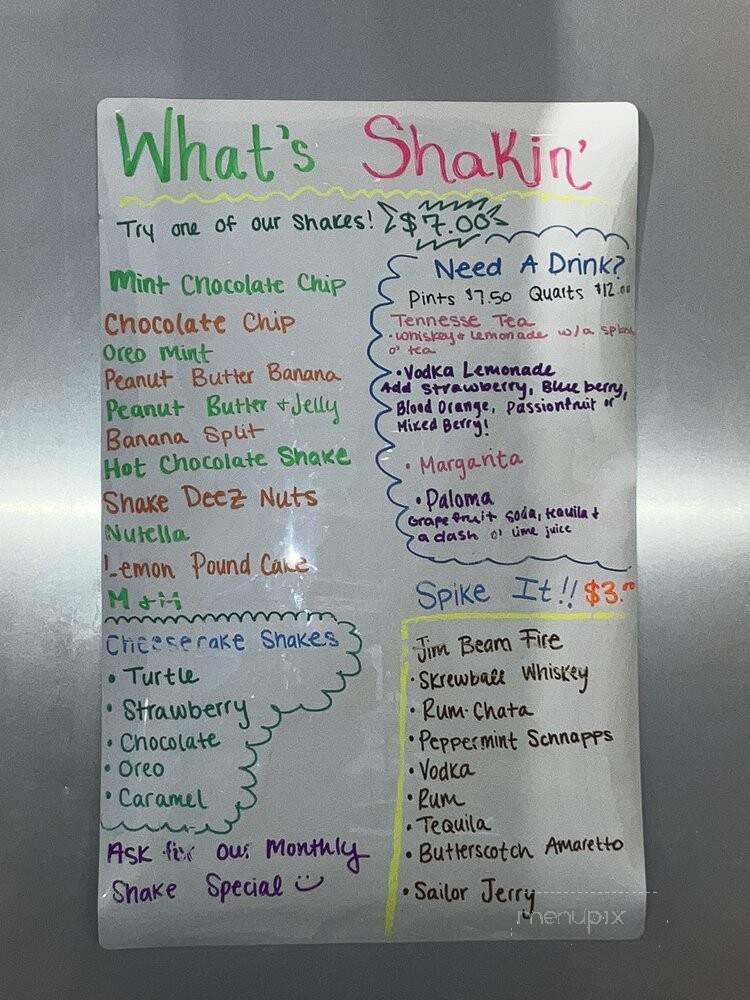 What's Shakin'
Try one of our shakes! $7.00
Mint Chocolate Chip
Chocolate Chip
Oreo Mint
Peanut Butter Banana
Peanut Butter + Jelly
Banana Split
Hot Chocolate Shake
Shake Deez Nuts
Nutella
Lemon Pound Cake
M + M
Cheesecake Shakes
• Turtle
• Strawberry
• Chocolate
• Oreo
• Caramel
Ask for our Monthly
Shake Special
Need A Drink?
Pints $7.50 Quarts $12.00
Tennesse Tea
• whiskey + lemonade w/a splash
o' tea
• Vodka Lemonade
Add Strawberry, Blueberry,
Blood Orange, Passionfruit or
Mixed Berry!
• Margarita
• Paloma
Grapefruit soda, tequila +
a dash o' lime juice
Spike It!! $3.00
Jim Beam Fire
• Skrewball Whiskey
• Rum-Chata
• Peppermint Schnapps
• Vodka
• Rum
• Tequila
• Butterscotch Amaretto
• Sailor Jerry
menupix